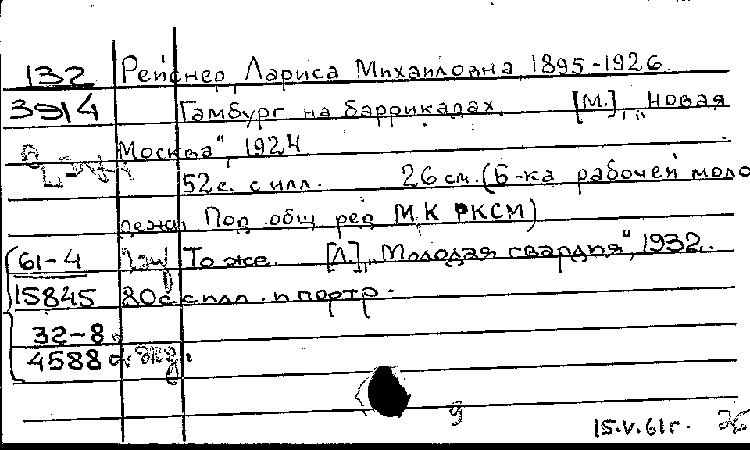 132 Рейснер, Лариса Михайловна 1895-1926.
3914 Гамбург на баррикадах. [М.], „Новая
Москва", 1924
52 с. с илл. 26 см. (Б-ка рабочей моло
дежи Под общ ред М.К РКСМ)
61-4 То же. [Л.], „Молодая гвардия", 1932.
15845 80 с с илл. и портр.
32-8
4588 экз.
9
15.V.61г.